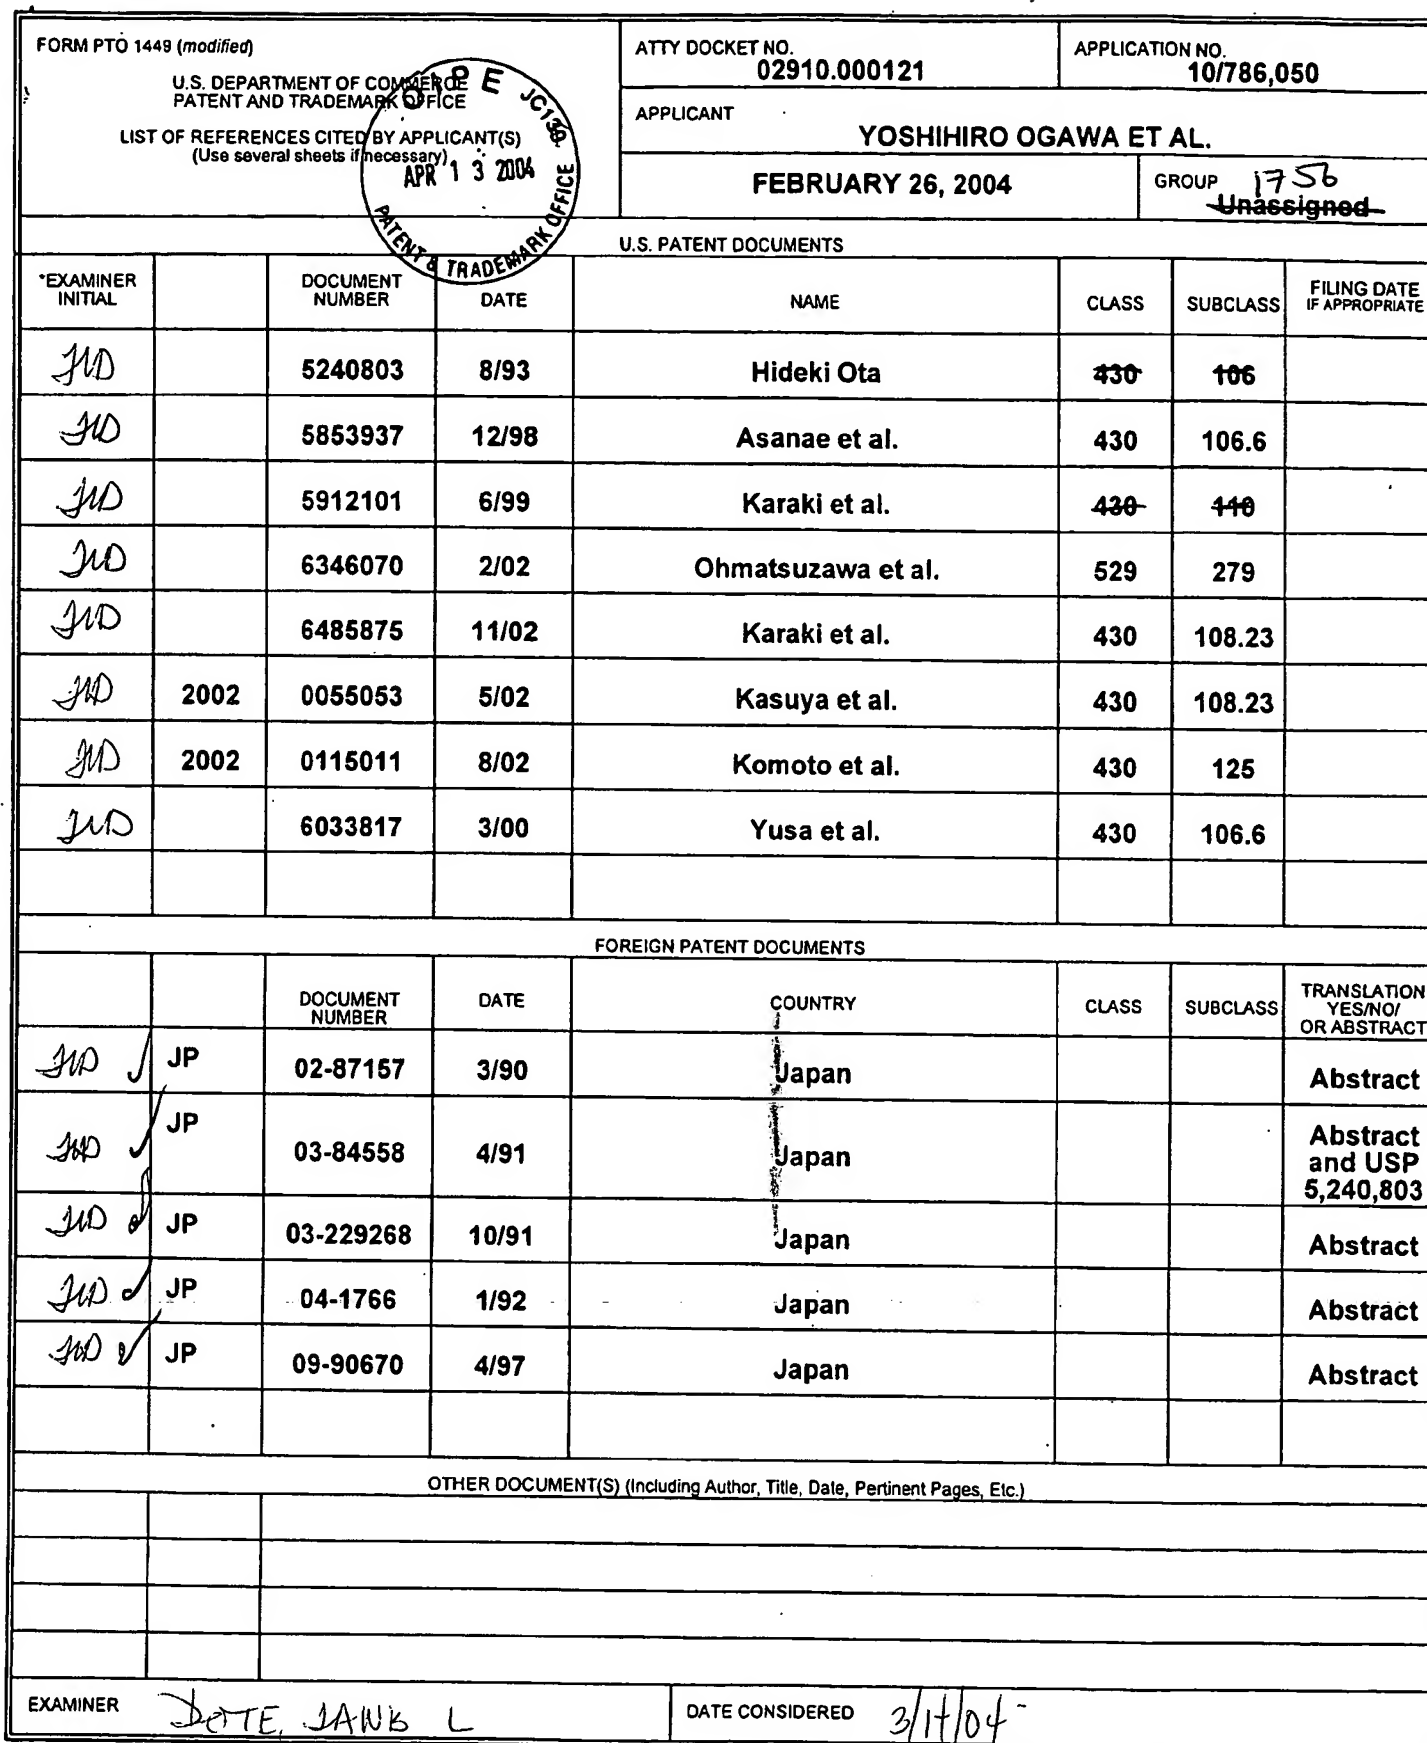 FORM PTO 1449 (modified)
U.S. DEPARTMENT OF COMMERCE
PATENT AND TRADEMARK OFFICE
LIST OF REFERENCES CITED BY APPLICANT(S)
(Use several sheets if necessary)
O I P E JC139
APR 13 2004
PATENT & TRADEMARK OFFICE
ATTY DOCKET NO.
02910.000121
APPLICATION NO.
10/786,050
APPLICANT
YOSHIHIRO OGAWA ET AL.
FEBRUARY 26, 2004
GROUP 1756
Unassigned
U.S. PATENT DOCUMENTS
*EXAMINER INITIAL DOCUMENT NUMBER DATE NAME CLASS SUBCLASS FILING DATE IF APPROPRIATE
5240803 8/93 Hideki Ota 430 106
5853937 12/98 Asanae et al. 430 106.6
5912101 6/99 Karaki et al. 430 110
6346070 2/02 Ohmatsuzawa et al. 529 279
6485875 11/02 Karaki et al. 430 108.23
2002 0055053 5/02 Kasuya et al. 430 108.23
2002 0115011 8/02 Komoto et al. 430 125
6033817 3/00 Yusa et al. 430 106.6
FOREIGN PATENT DOCUMENTS
DOCUMENT NUMBER DATE COUNTRY CLASS SUBCLASS TRANSLATION YES/NO/ OR ABSTRACT
JP 02-87157 3/90 Japan Abstract
JP 03-84558 4/91 Japan Abstract and USP 5,240,803
JP 03-229268 10/91 Japan Abstract
JP 04-1766 1/92 Japan Abstract
JP 09-90670 4/97 Japan Abstract
OTHER DOCUMENT(S) (Including Author, Title, Date, Pertinent Pages, Etc.)
EXAMINER DOTE, L
DATE CONSIDERED